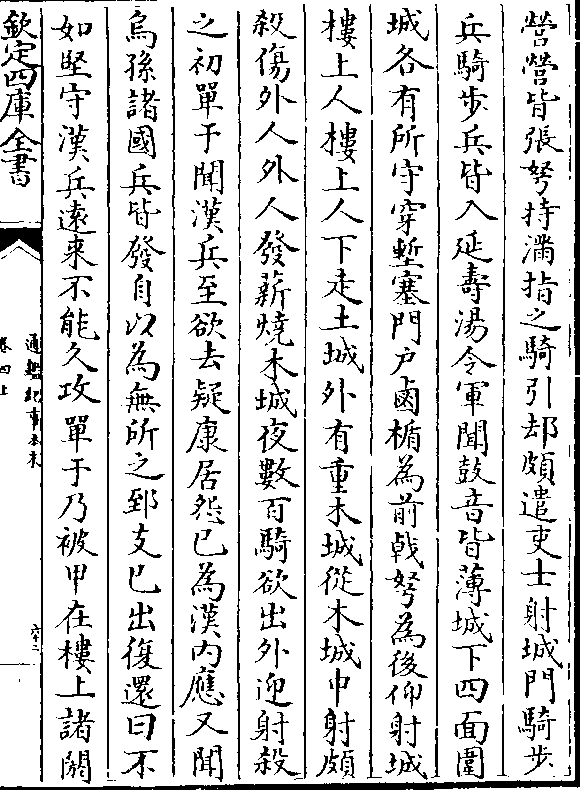 營營皆張弩持滿指之騎引却頗遣吏士射城門騎步
兵騎步兵皆入延壽湯令軍聞鼓音皆薄城下四面圍
城各有所守穿塹塞門户鹵楯為前戟弩為後仰射城
樓上人樓上人下走土城外有重木城從木城中射頗
殺傷外人外人發薪燒木城夜數百騎欲出外迎射殺
之初單于聞漢兵至欲去疑康居怨已為漢内應又聞
烏孫諸國兵皆發自以為無所之郅支已出復還曰不
如堅守漢兵逺來不能久攻單于乃被甲在樓上諸閼
欽定四庫全書
通鑑紀事本末
卷四上
六十二